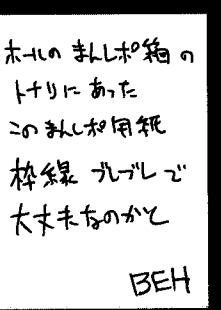 ホールの まんレポ箱の
トナリに あった
この まんレポ用紙
枠線 ブレブレで
大丈夫なのかと
BEH